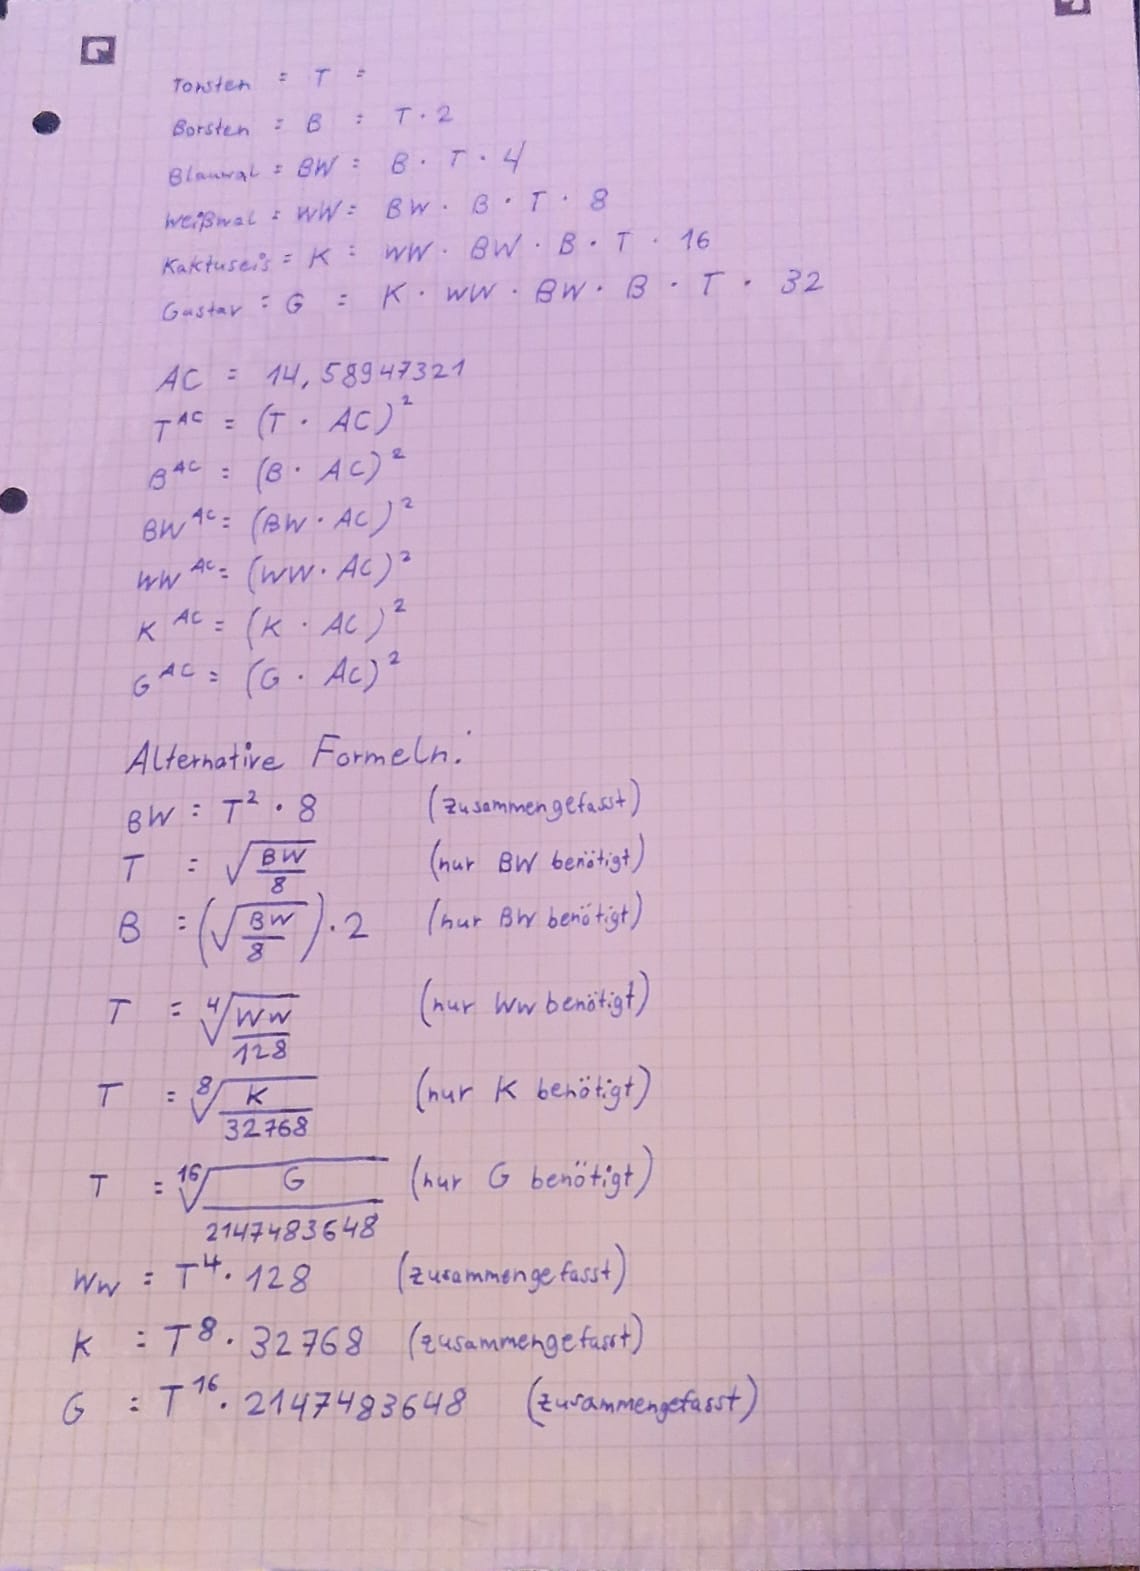 Torsten = T =
Borsten = B = T · 2
Blauwal = BW = B · T · 4
Weißwal = WW = BW · B · T · 8
Kaktuseis = K = WW · BW · B · T · 16
Gustav = G = K · WW · BW · B · T · 32
AC = 14,58947321
T^AC = (T · AC)²
B^AC = (B · AC)²
BW^AC = (BW · AC)²
WW^AC = (WW · AC)²
K^AC = (K · AC)²
G^AC = (G · AC)²
Alternative Formeln:
BW = T² · 8 (zusammengefasst)
T = √(BW/8) (nur BW benötigt)
B = (√(BW/8)) · 2 (nur BW benötigt)
T = ⁴√(WW/128) (nur WW benötigt)
T = ⁸√(K/32768) (nur K benötigt)
T = ¹⁶√(G/2147483648) (nur G benötigt)
WW = T⁴ · 128 (zusammengefasst)
K = T⁸ · 32768 (zusammengefasst)
G = T¹⁶ · 2147483648 (zusammengefasst)